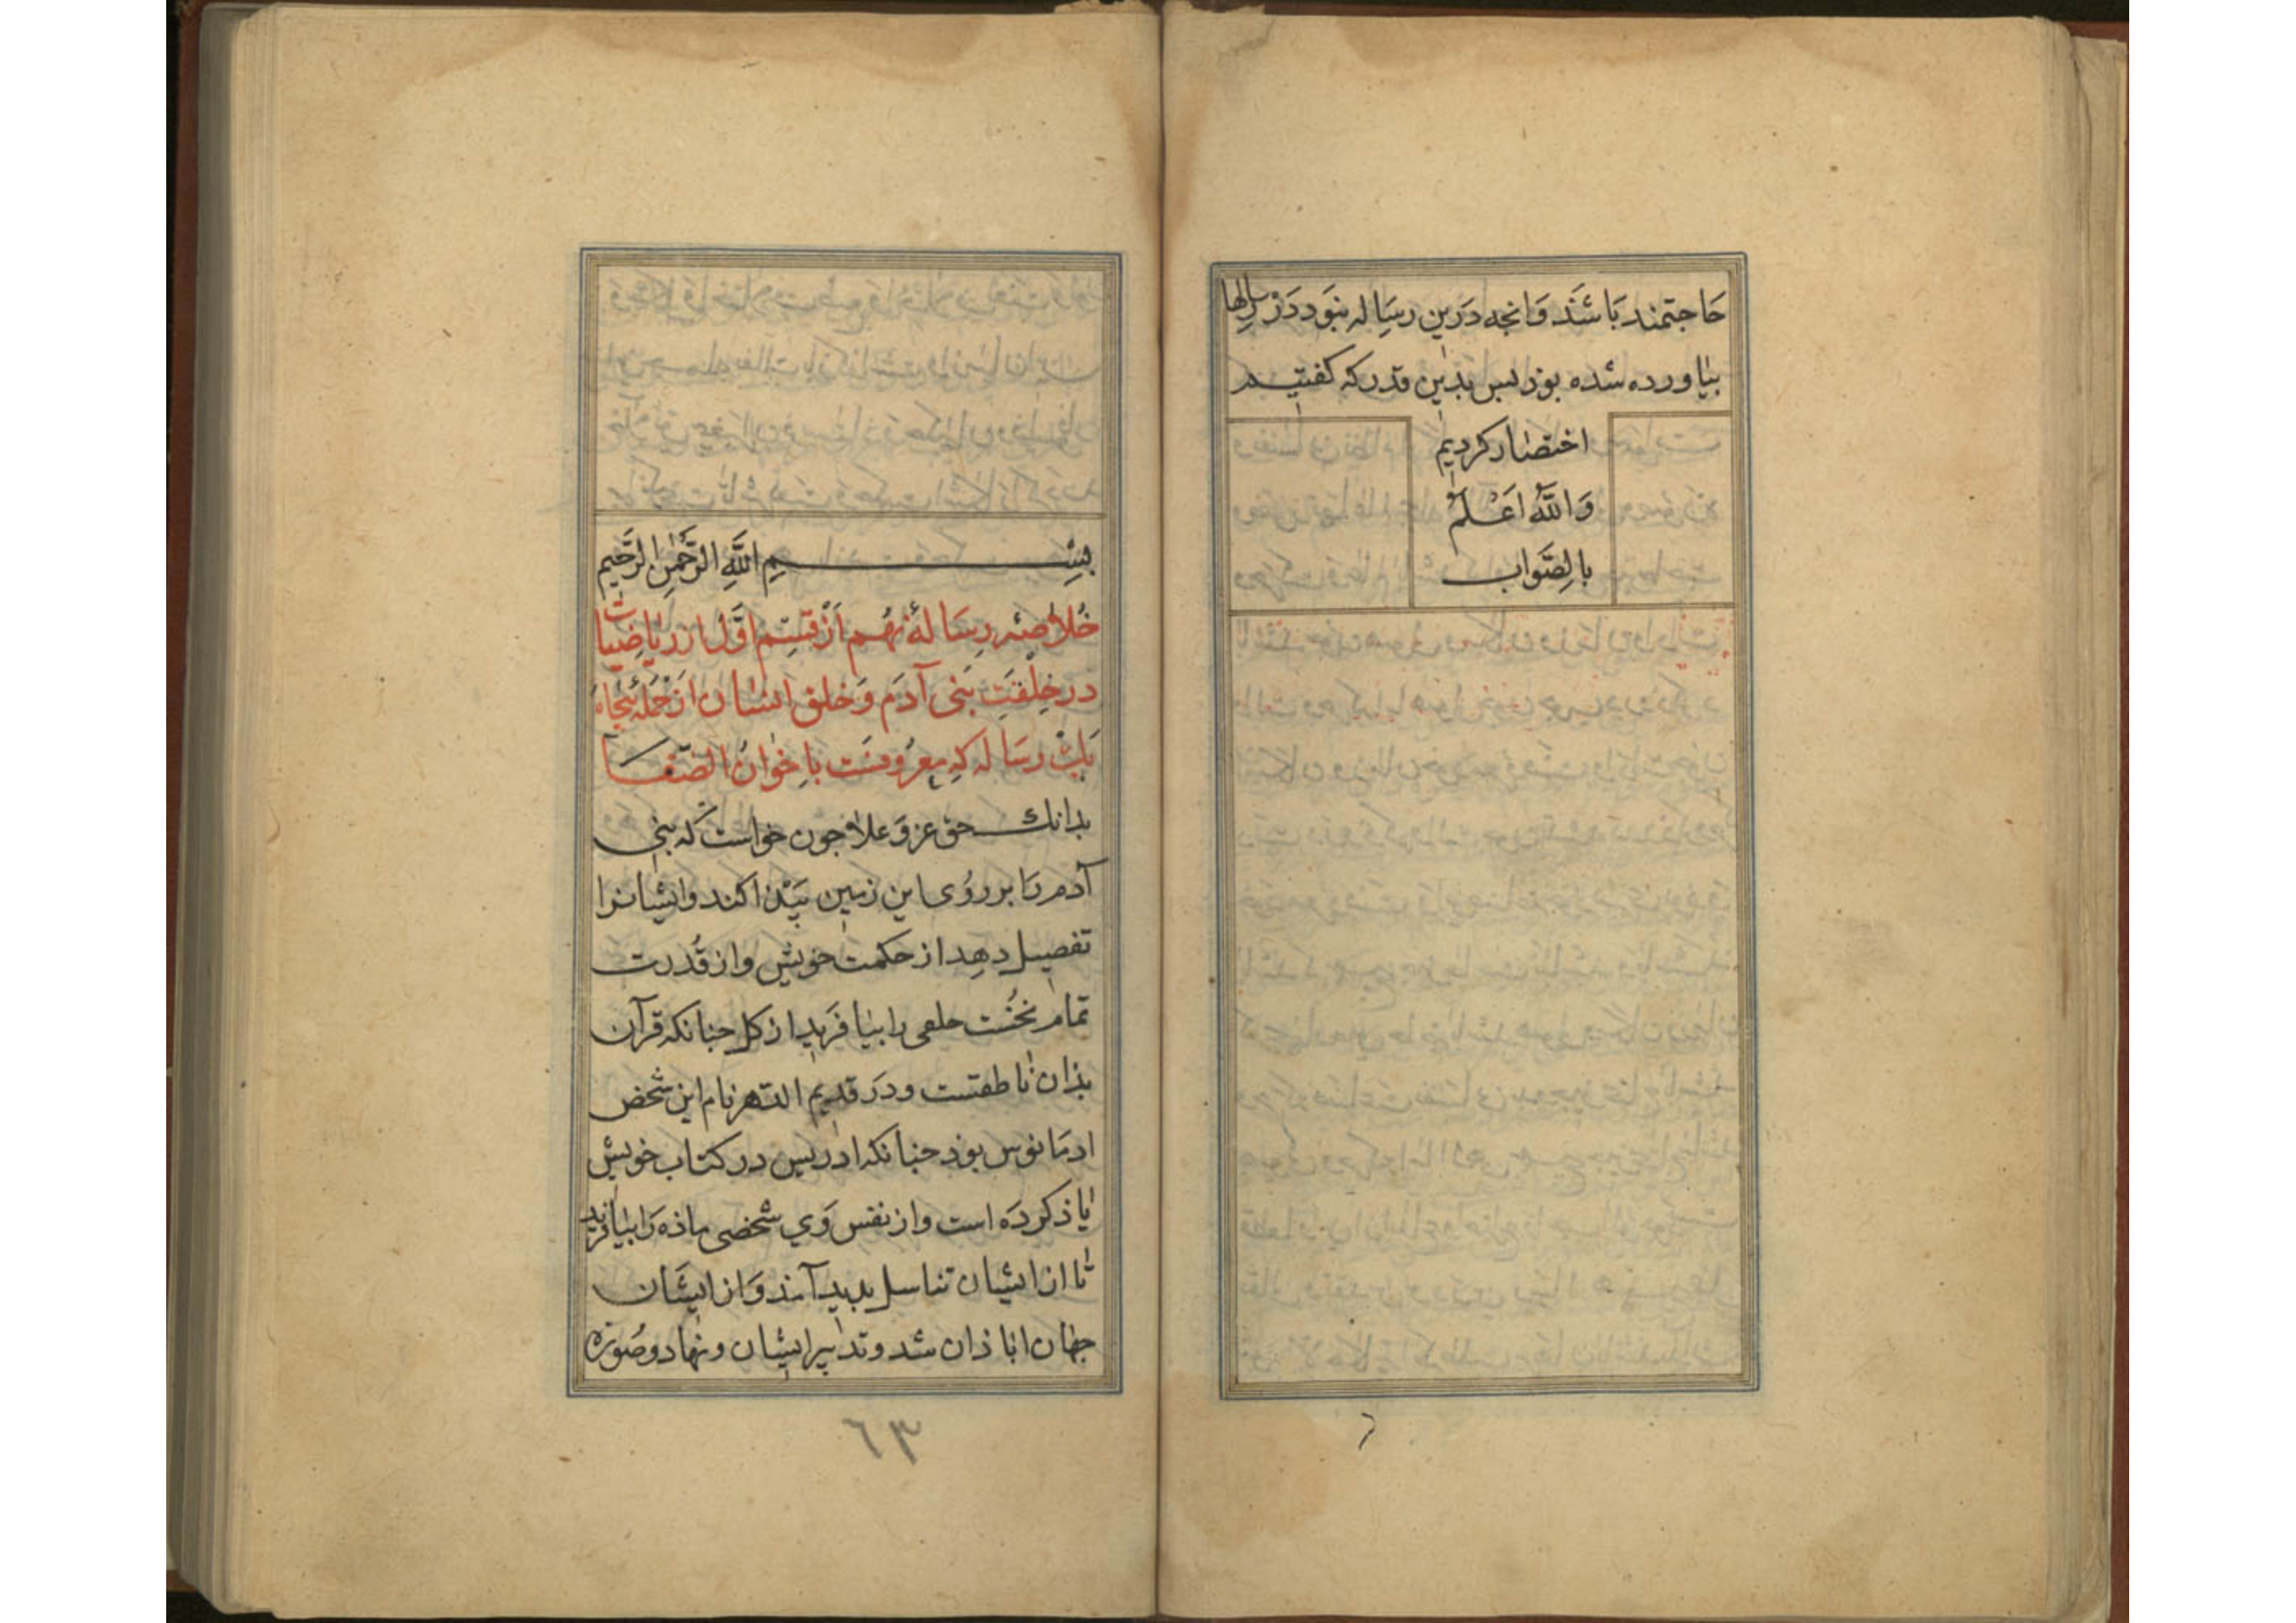 حاجتمند باشند وانجه درین رساله نبود در رسالها
بیاورده شده بود بس بدین قدر که کفتیم
اختصار کردیم
وَاللّٰهُ اَعْلَمُ
بالصَّواب
بِسْمِ اللَّهِ الرَّحْمٰنِ الرَّحیم
خُلاصهٔ رسالهٔ نهم اَز قسِم اوَّل از ریاضیات
در خِلْقَتِ بَنی آدَم وَخلق انسان از جمله پنجاه
یک رساله که معروفست باِخوانُ الصّفا
بدانک حق عز وَعلا جون خواست که بنی
آدم رَا بر رُوی این زمین بَیدا کند وایشانرا
تفصیل دهد از حکمت خویش واز قُدرت
تمام نخُست خلقی را بیافرید از کل جنانکه قرآن
بذان ناطقست ودَر قدیم الدهر نام این شخص
ادمانوس بوذ جنانکه ادریس در کتاب خویش
یاذ کردَه است واز نفس وَی شخصی ماذه رَا بیافرید
تا از ایشان تناسل بدید آمذ وَاز ایشان
جهان اباذان شد وتدبیر ایشان ونهاد وصُورة
٦٣